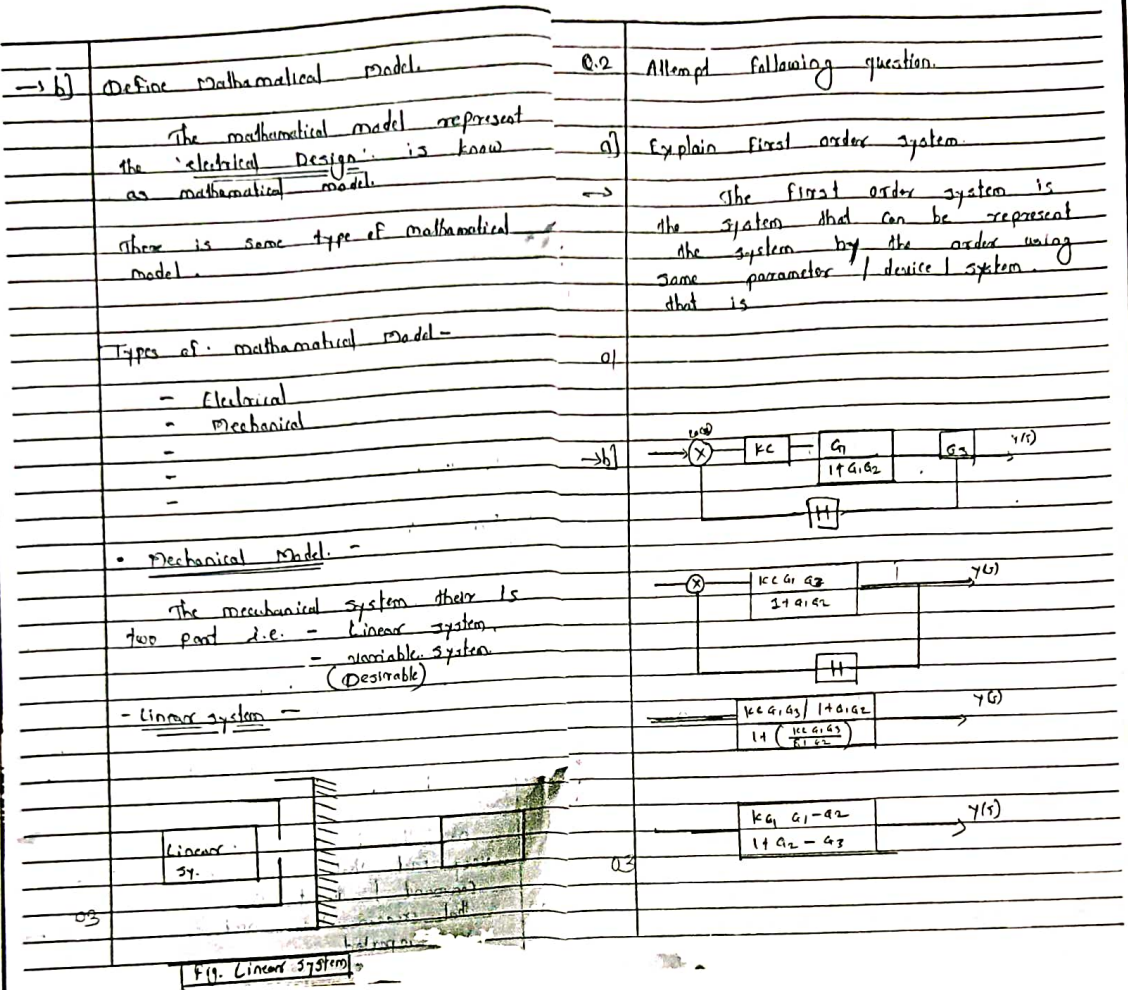 → b] Define Mathamatical Model.
The mathematical model represent
the 'electrical Design'. is know
as mathamatical model.
There is some type of mathamatical
model.
Types of. mathamatical Model-
- Electrical
- Mechanical
-
-
-
• Mechanical Model. -
The mecuhanical system their is
two part i.e. - Linear system.
- variable. system.
(Desirable)
- Linear system -
Linear.
Sy.
03
Fig. Linear system
Q.2 Attempt following question.
a] Explain First order system.
→ The first order system is
the system that can be represent
the system by the order using
some parameter / device / system.
that is
01
→b]
KC
G1
1+G1G2
G3
Y(s)
H
KC G1 G3
1+G1G2
1
Y(s)
H
KC G1G3/ 1+G1G2
1+ (KC G1G3
G1G2)
Y(s)
KG1 G1-G2
1+G2-G3
Y(s)
03